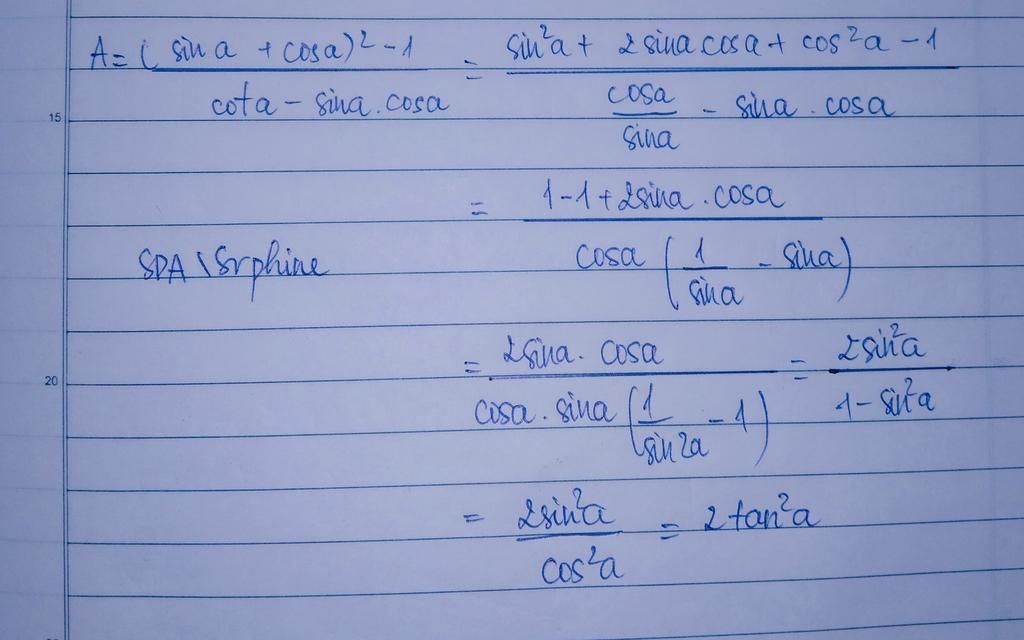 A = (sin a + cosa)² - 1 / cota - sina . cosa = sin²a + 2 sina cosa + cos²a - 1 / cosa/sina - sina . cosa
= 1 - 1 + 2sina . cosa / cosa (1/sina - sina)
SDA \ Srphine
= 2sina . cosa / cosa . sina (1/sin2a - 1) = 2sin²a / 1 - sin²a
= 2sin²a / cos²a = 2 tan²a
15
20